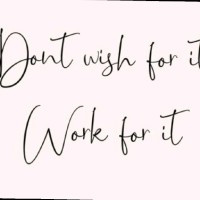 Dont wish for it
Work for it